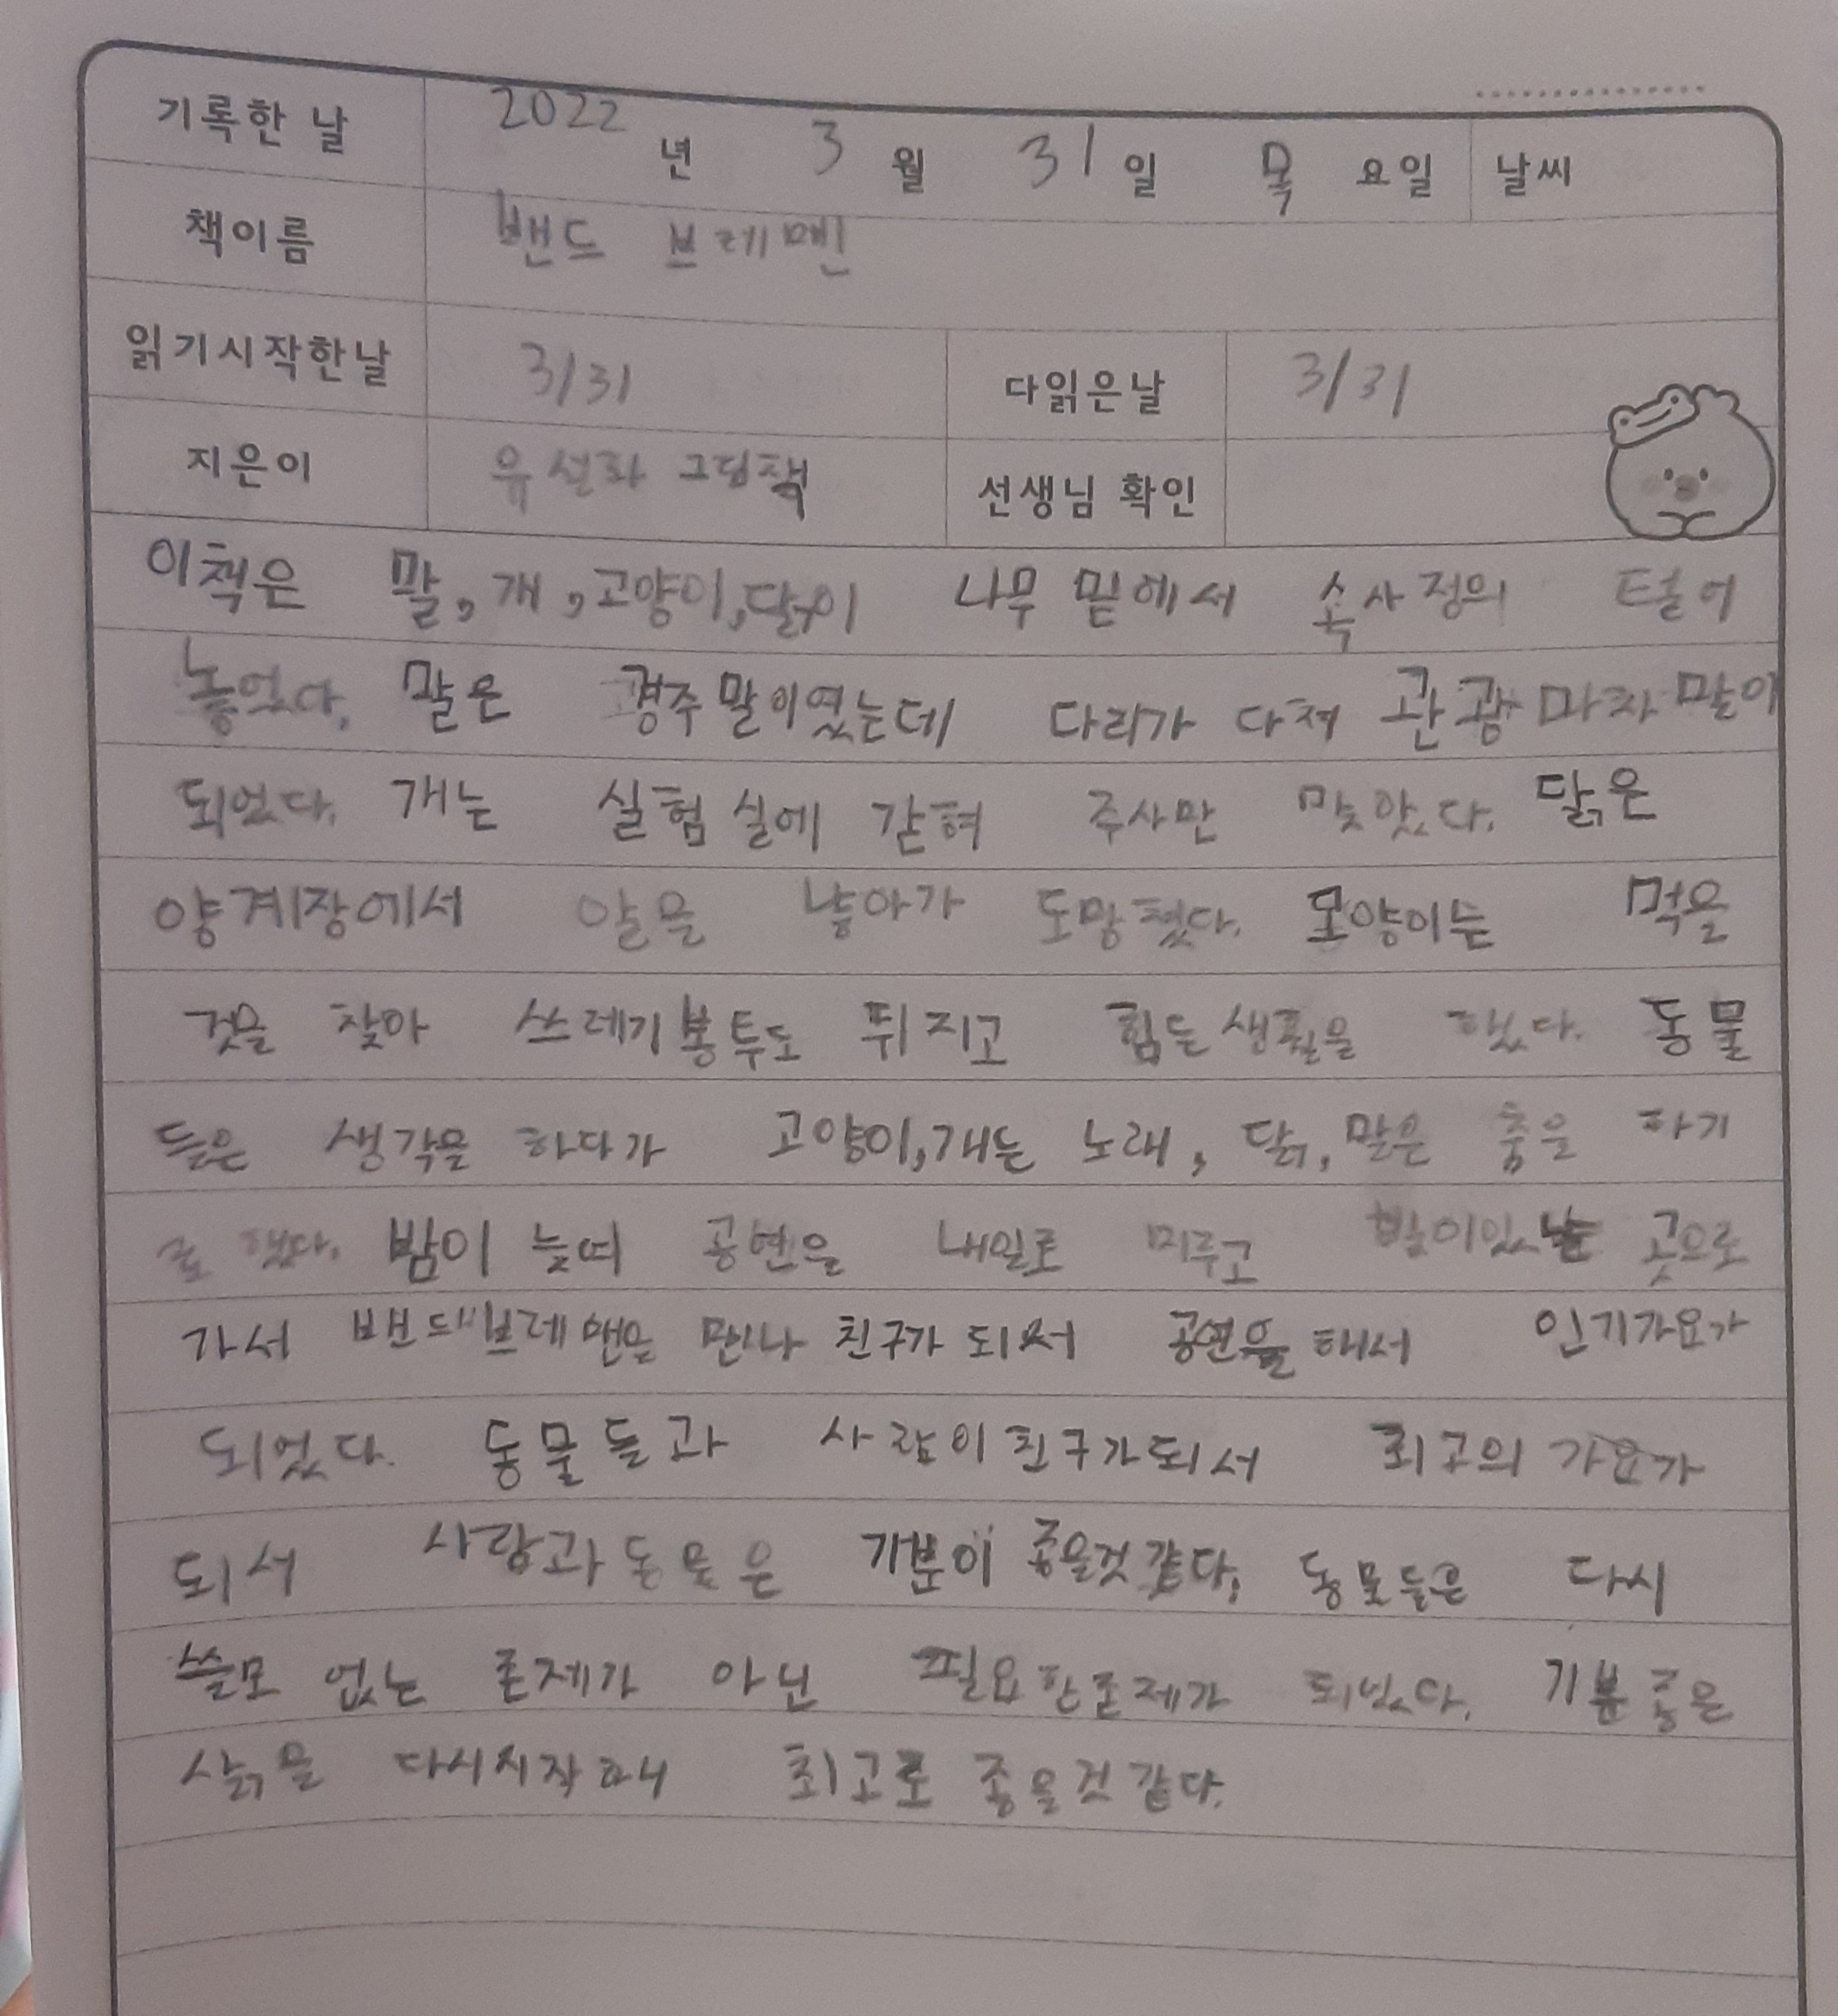 기록한 날 2022 년 3 월 31 일 목 요일 날씨
책이름 밴드 브레멘
읽기시작한날 3/31 다읽은날 3/31
지은이 유설화 그림책 선생님 확인
이책은 말, 개, 고양이, 닭이 나무 밑에서 속사정의 털어
놓었다. 말은 경주말이였는데 다리가 다쳐 관광마차말이
되었다. 개는 실험실에 갇혀 주사만 맞았다. 닭은
양계장에서 알을 낳아가 도망쳤다. 고양이는 먹을
것을 찾아 쓰레기봉투도 뒤지고 힘든생활을 했다. 동물
들은 생각을 하다가 고양이,개는 노래, 닭, 말은 춤을 하기
로 했다. 밤이 늦어 공연을 내일로 미루고 빛이있는 곳으로
가서 밴드브레맨을 만나 친구가 되서 공연을 해서 인기가요가
되었다. 동물들과 사람이친구가되서 최고의 가요가
되서 사람과 동물은 기분이 좋을것 같다. 동물들은 다시
쓸모 없는 존제가 아닌 필요한존제가 되었다. 기분좋은
삶을 다시시작하니 최고로 좋을것같다.